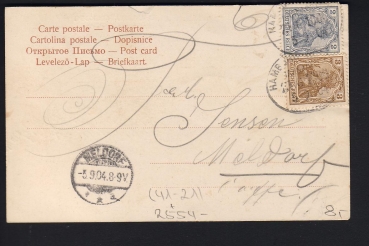 Carte postale — Postkarte
Cartolina postale — Dopisnice
Открытое Письмо — Post card
Levelező-Lap — Briefkaart.
HAMB
2 2
3 3
Jensen
Meldorf
MELDORF
-5.9.04.8-9V
(41-211)
2554-
8,-